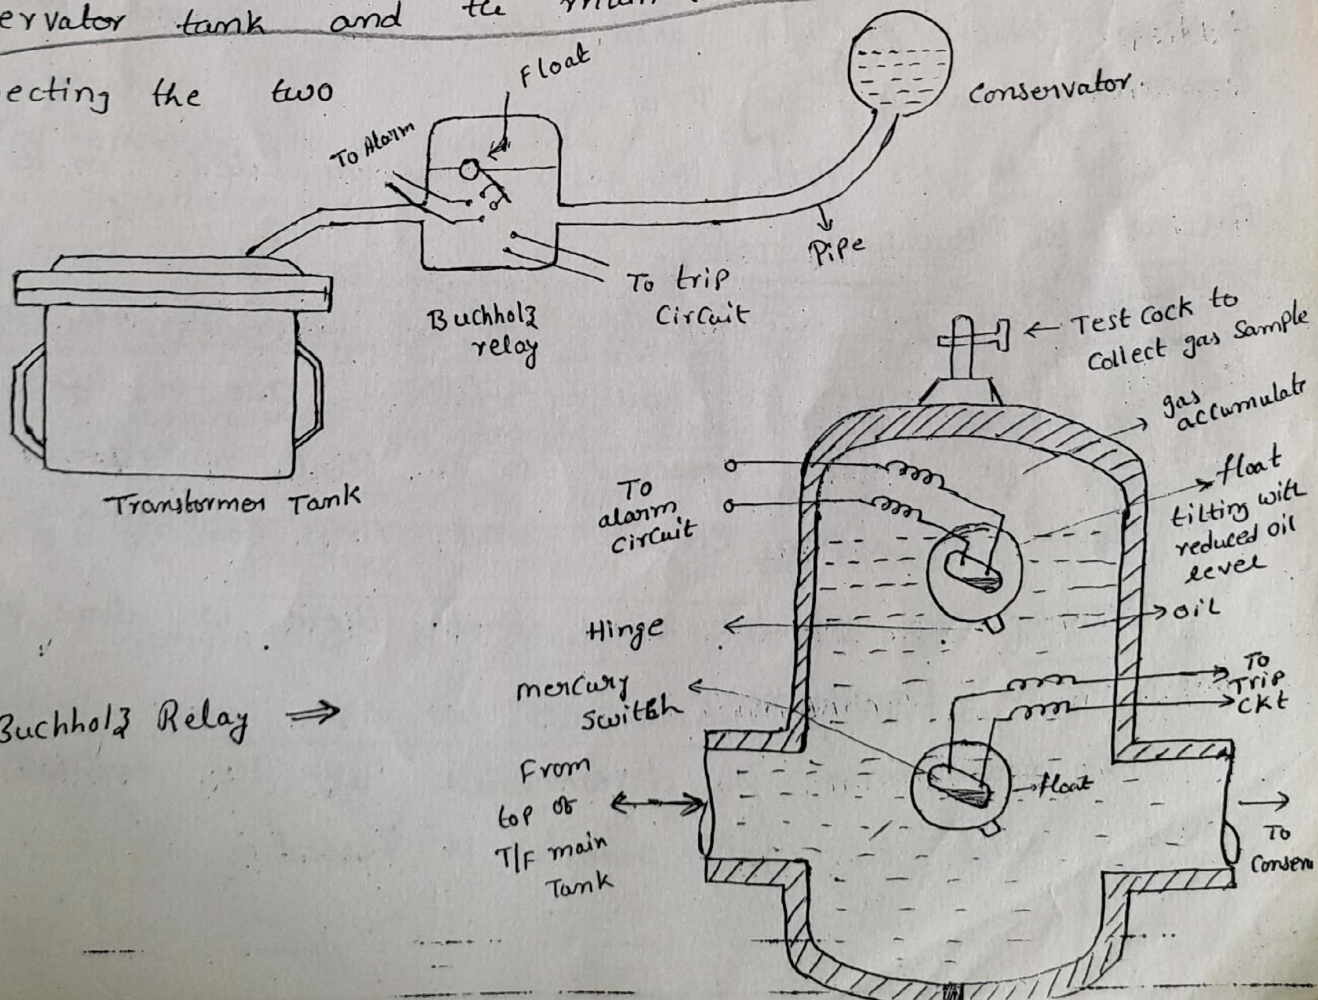 ervator tank and the main
ecting the two
Float
To Alarm
Conservator.
Pipe
To trip
Circuit
Buchholz
relay
Transformer Tank
Test Cock to
Collect gas Sample
gas
accumulate
float
tilting with
reduced oil
level
oil
To
alarm
Circuit
Hinge
mercury
Switch
To
Trip
Ckt
Buchholz Relay ⇒
From
top of
T/F main
Tank
float
To
Conserv